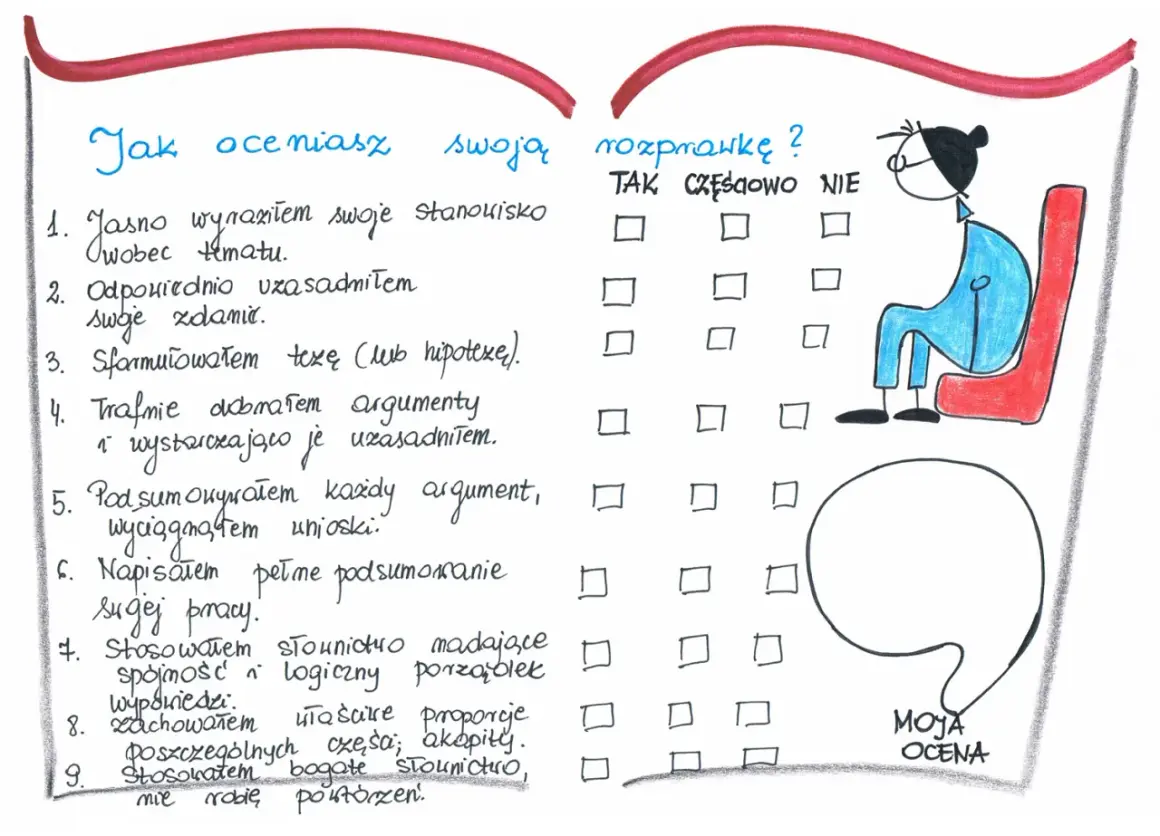 Jak oceniasz swoją rozprawkę?
TAK CZĘŚCIOWO NIE
1. Jasno wyraziłem swoje stanowisko
wobec tematu.
2. Odpowiednio uzasadniłem
swoje zdanie.
3. Sformułowałem tezę (lub hipotezę).
4. Trafnie dobrałem argumenty
i wystarczająco je uzasadniłem.
5. Podsumowywałem każdy argument,
wyciągnąłem wnioski.
6. Napisałem pełne podsumowanie
swojej pracy.
7. Stosowałem słownictwo nadające
spójność i logiczny porządek
wypowiedzi.
8. Zachowałem właściwe proporcje
poszczególnych części, akapity.
9. Stosowałem bogate słownictwo,
nie robię powtórzeń.
MOJA
OCENA